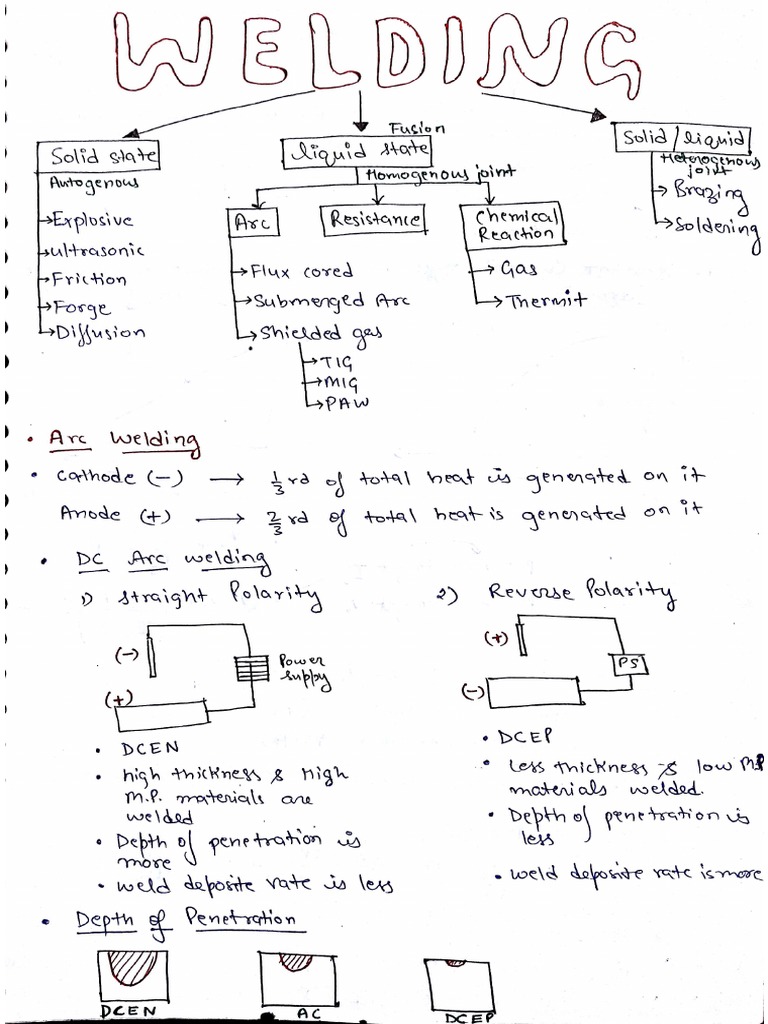 WELDING
Solid state
Autogenous
→Explosive
→ultrasonic
→Friction
→Forge
→Diffusion
Fusion
liquid state
Homogenous joint
Arc
→Flux cored
→Submerged Arc
→Shielded gas
→TIG
→MIG
→PAW
Resistance
Chemical
Reaction
→Gas
→Thermit
Solid/liquid
Heterogenous
joint
→Brazing
→Soldering
• Arc Welding
• Cathode (-) → 1/3 rd of total heat is generated on it
Anode (+) → 2/3 rd of total heat is generated on it
• DC Arc welding
1) Straight Polarity
(-)
Power
supply
(+)
• DCEN
• high thickness & High
M.P. materials are
welded
• Depth of penetration is
more
• weld deposite rate is less
2) Reverse Polarity
(+)
PS
(-)
• DCEP
• less thickness & low M.P
materials welded.
• Depth of penetration is
less
• weld deposite rate is more
• Depth of Penetration
DCEN
AC
DCEP